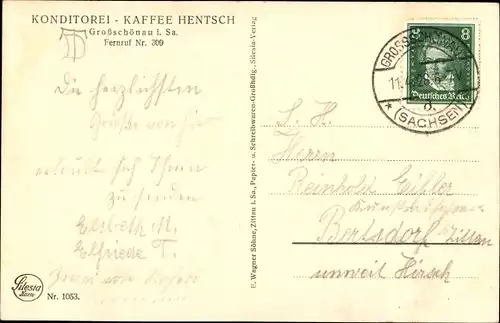 KONDITOREI - KAFFEE HENTSCH
Großschönau i. Sa.
Fernruf Nr. 309
Die herzlichsten
Grüße von hier
erlaubt sich Ihnen
zu senden
Elsbeth N.
Elfriede T.
Silesia
Nr. 1053.
E. Wagner Söhne, Zittau i. Sa., Papier- u. Schreibwaren-Großhdlg., Silesia-Verlag
8 8
Deutsches Reich
GROSSSCHÖNAU
11.
(SACHSEN)
S. H.
Herrn
Reinhold
Bertsdorf Zittau
unweit Hirsch